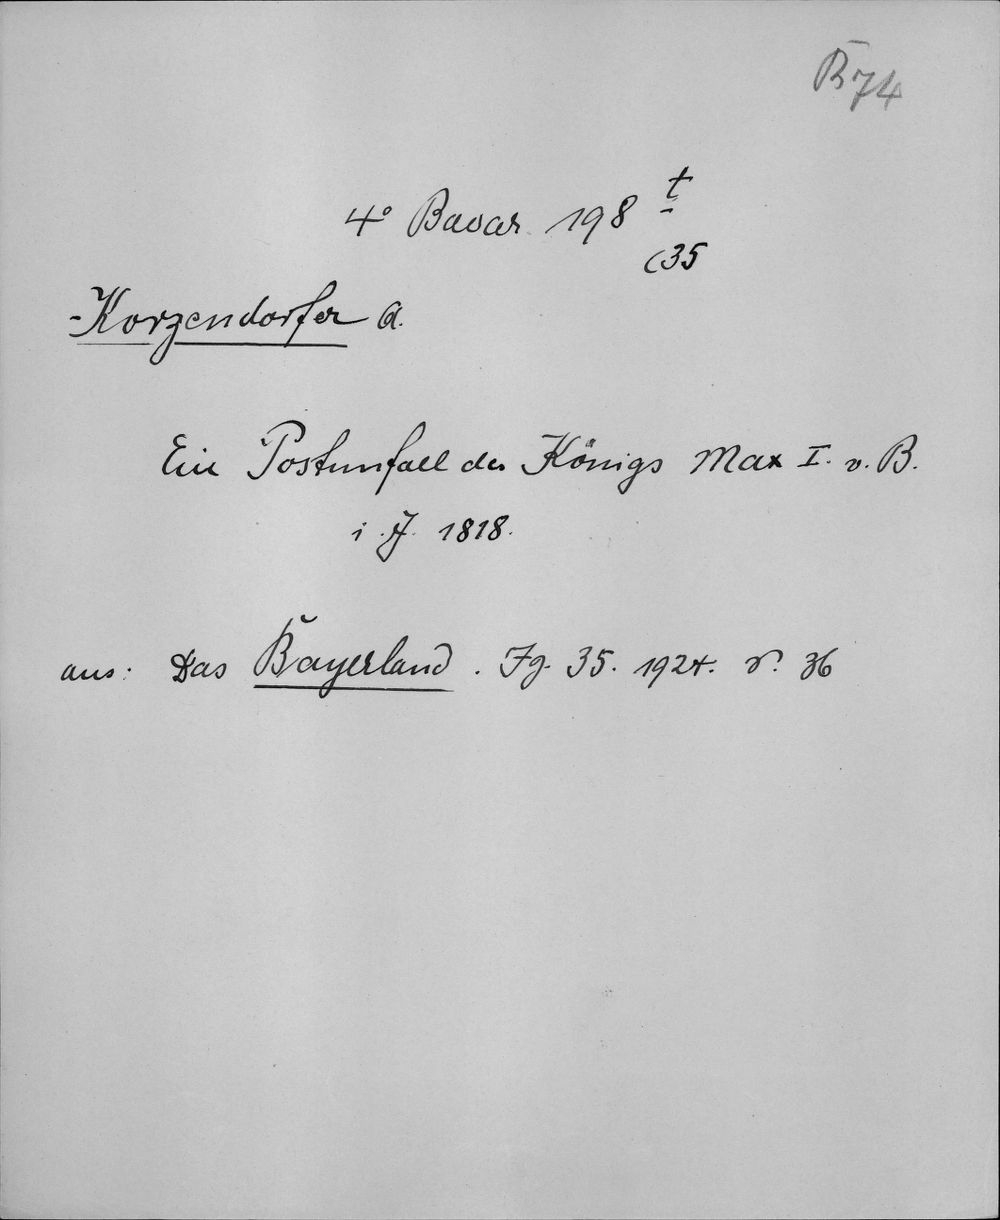 B74
4° Bavar. 198 t
(35
-Korzendorfer A.
Ein Postunfall des Königs Max I. v. B.
i. J. 1818.
aus: Das Bayerland. Jg. 35. 1924. S. 36